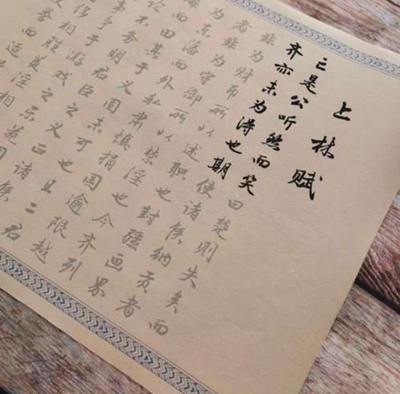 上林赋
亡是公听然而笑曰楚则失矣而
齐亦未为得也期使诸侯纳贡者
非为财币所以述职也封疆画界
者非为守御所以禁淫也今齐列
为东藩而外私肃慎捐国逾限越
而田其于义固未可也且二君
论不务明君臣之义正诸侯
事争于游戏之
侈相